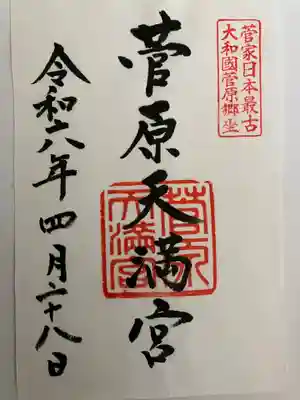 菅家日本最古
大和國菅原郷坐
菅原天満宮
菅原
天満宮
令和六年四月二十八日